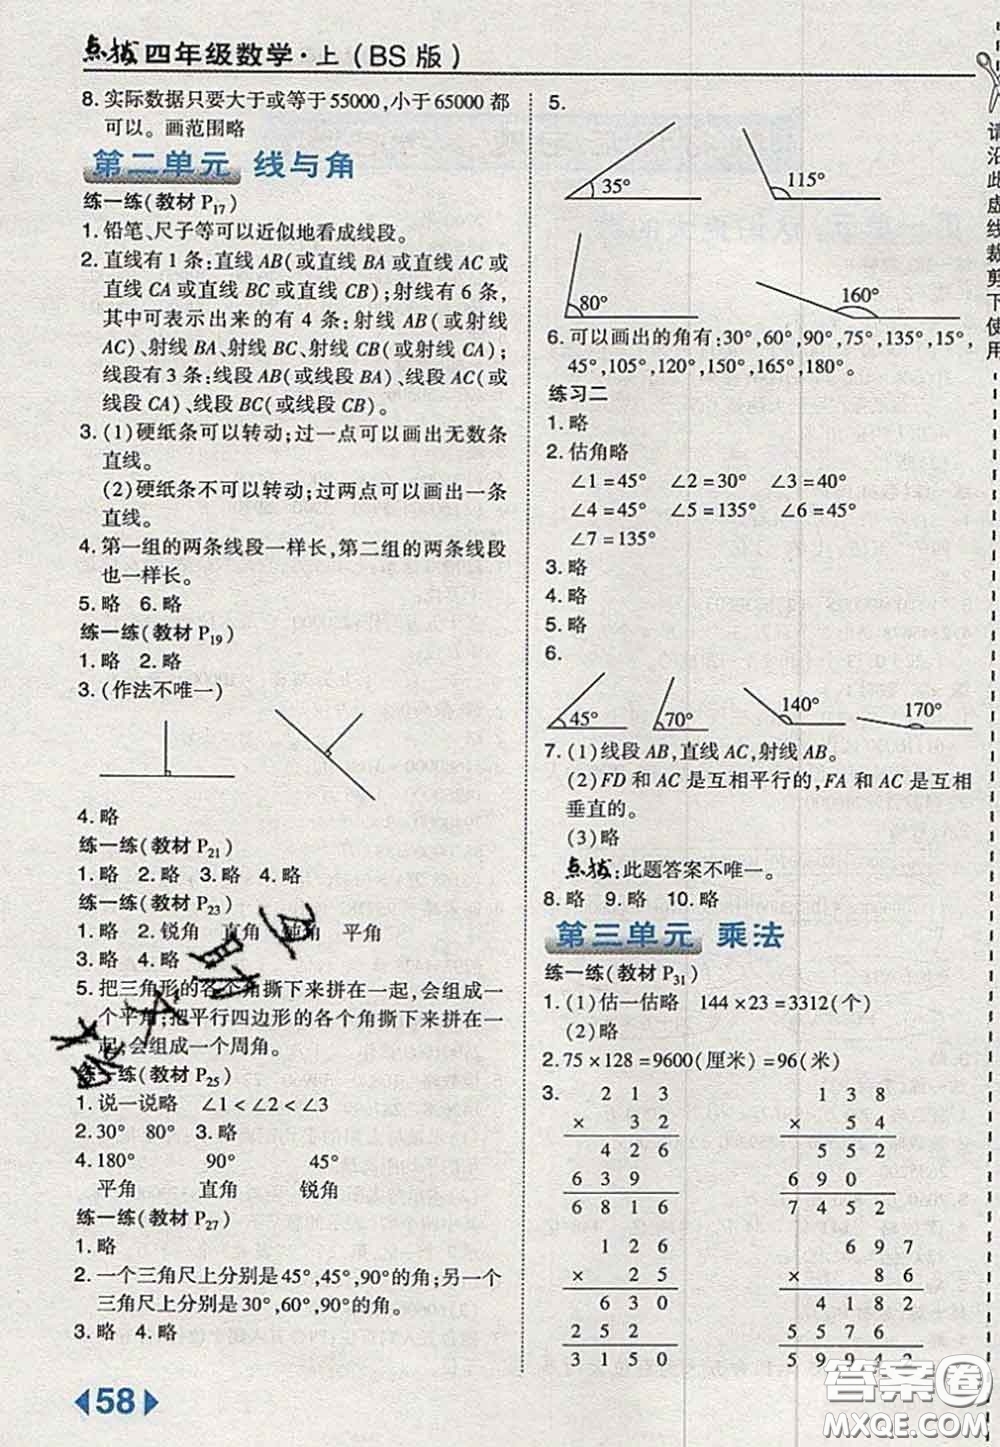 点拨 四年级数学·上(BS版)
8. 实际数据只要大于或等于55000,小于65000都
可以。画范围略
第二单元 线与角
练一练(教材P17)
1. 铅笔、尺子等可以近似地看成线段。
2. 直线有1条:直线AB(或直线BA或直线AC或
直线CA或直线BC或直线CB);射线有6条,
其中可表示出来的有4条:射线AB(或射线
AC)、射线BA、射线BC、射线CB(或射线CA);
线段有3条:线段AB(或线段BA)、线段AC(或
线段CA)、线段BC(或线段CB)。
3. (1)硬纸条可以转动;过一点可以画出无数条
直线。
(2)硬纸条不可以转动;过两点可以画出一条
直线。
4. 第一组的两条线段一样长,第二组的两条线段
也一样长。
5. 略 6. 略
练一练(教材P19)
1. 略 2. 略
3. (作法不唯一)
4. 略
练一练(教材P21)
1. 略 2. 略 3. 略 4. 略
练一练(教材P23)
1. 略 2. 锐角 直角 钝角 平角
3. 略 4. 略
5. 把三角形的各个角撕下来拼在一起,会组成一
个平角;把平行四边形的各个角撕下来拼在一
起,会组成一个周角。
练一练(教材P25)
1. 说一说略 ∠1<∠2<∠3
2. 30° 80° 3. 略
4. 180° 90° 45°
平角 直角 锐角
练一练(教材P27)
1. 略
2. 一个三角尺上分别是45°,45°,90°的角;另一个
三角尺上分别是30°,60°,90°的角。
3. 略 4. 略
58
5.
35°
115°
80°
160°
6. 可以画出的角有:30°,60°,90°,75°,135°,15°,
45°,105°,120°,150°,165°,180°。
练习二
1. 略
2. 估角略
∠1=45° ∠2=30° ∠3=40°
∠4=45° ∠5=135° ∠6=45°
∠7=135°
3. 略
4. 略
5. 略
6.
45°
70°
140°
170°
7. (1)线段AB,直线AC,射线AB。
(2)FD和AC是互相平行的,FA和AC是互相
垂直的。
(3)略
点拨:此题答案不唯一。
8. 略 9. 略 10. 略
第三单元 乘法
练一练(教材P31)
1. (1)估一估略 144×23=3312(个)
(2)略
2. 75×128=9600(厘米)=96(米)
3. 213 138
× 32 × 54
426 552
639 690
6816 7452
126 697
× 25 × 86
630 4182
252 5576
3150 59942
请沿此虚线裁剪下使用
答案圈
MXQE.COM